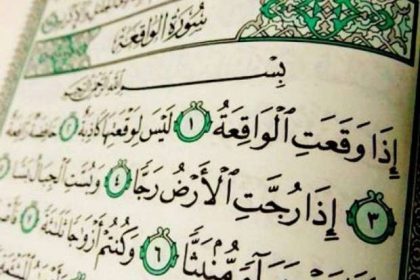 سُورَةُ الوَاقِعَةِ
بِسْمِ اللَّهِ الرَّحْمَٰنِ الرَّحِيمِ
إِذَا وَقَعَتِ ٱلْوَاقِعَةُ ١ لَيْسَ لِوَقْعَتِهَا كَاذِبَةٌ ٢ خَافِضَةٌ رَّافِعَةٌ
٣ إِذَا رُجَّتِ ٱلْأَرْضُ رَجًّا ٤ وَبُسَّتِ ٱلْجِبَالُ بَسًّا
مُّنۢبَثًّا ٦ وَكُنتُمْ أَزْوَٰجًا ثَلَٰثَةً ٧